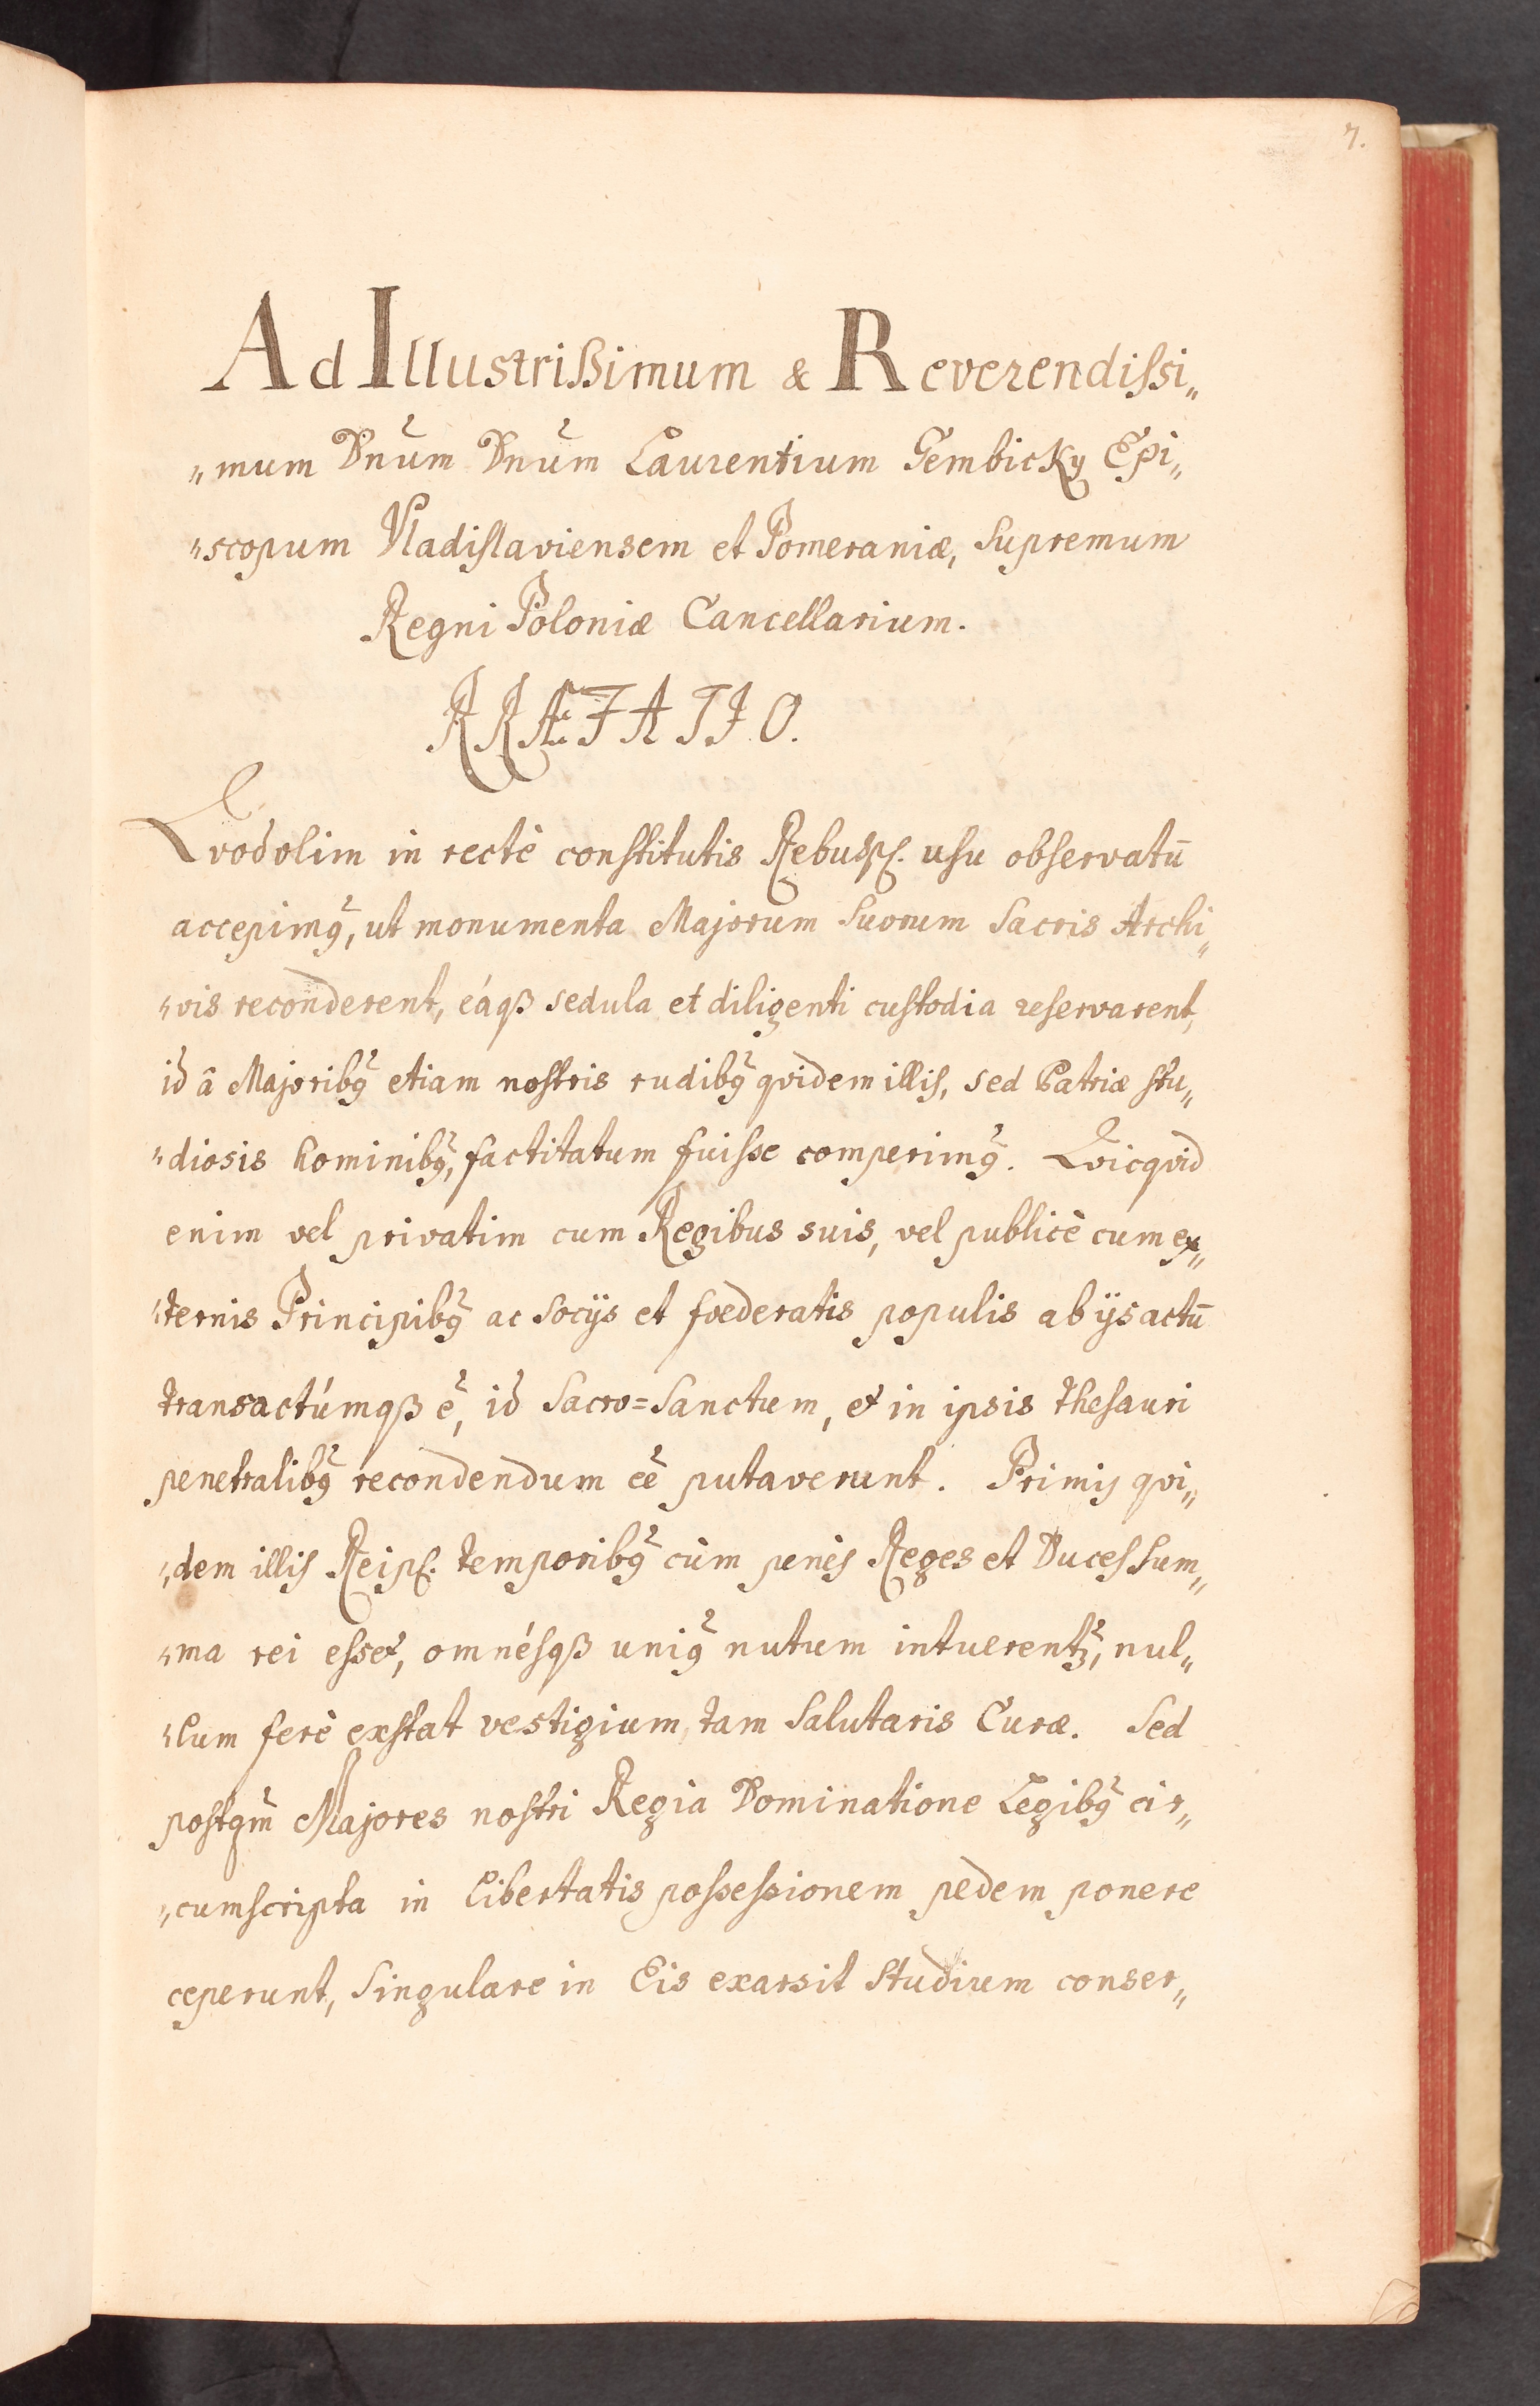 7.
Ad Illustrißimum & Reverendissi„
„mum Dnūm Dnūm Laurentium Gembicky Epi„
„scopum Vladislaviensem et Pomeraniæ, Supremum
Regni Poloniæ Cancellarium.
PRÆFATIO.
Qvod olim in rectè constitutis Rebusp. usu observatū
accepimꝰ, ut monumenta Majorum suorum Sacris Archi„
„vis reconderent, eáqß sedula et diligenti custodia reservarent,
id â Majoribꝰ etiam nostris rudibꝰ qvidem illis, sed Patriæ stu„
„diosis hominibꝰ, factitatum fuisse comperimꝰ. Qvicqvid
enim vel privatim cum Regibus suis, vel publicè cum ex„
„ternis Principibꝰ ac Socijs et fœderatis populis ab ijs actū
transactúmqß ē, id Sacro=Sanctum, et in ipsis thesauri
penetralibꝰ recondendum eē putaverunt. Primis qvi„
„dem illis Reip. temporibꝰ cùm penès Reges et Duces Sum„
„ma rei esset, omnésqß uniꝰ nutum intuerentꝫ, nul„
„lum ferè exstat vestigium tam Salutaris Curæ. Sed
postqm̄ Majores nostri Regia Dominatione Legibꝰ cir„
„cumscripta in Libertatis possessionem pedem ponere
ceperunt, Singulare in Eis exarsit Studium conser„